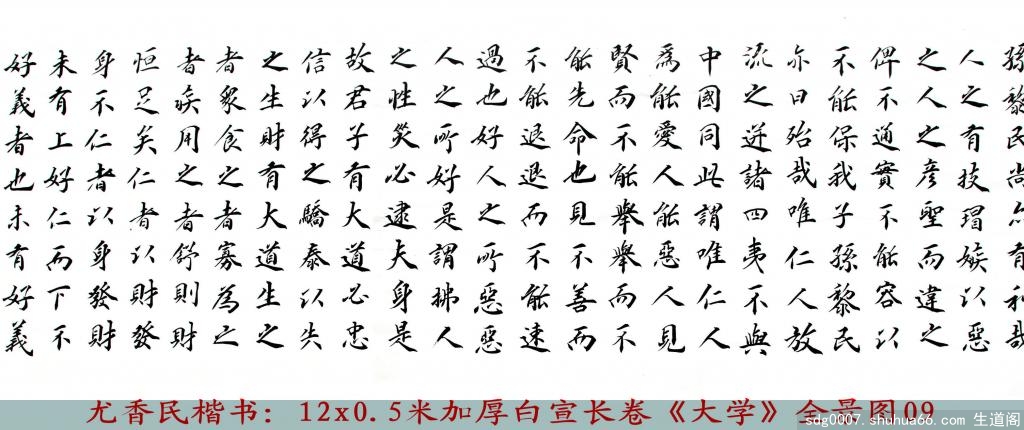 孫黎民尚亦有利哉
人之有技瑁嫉以惡
之人之彥聖而違之
俾不通實不能容以
不能保我子孫黎民
亦曰殆哉唯仁人放
流之迸諸四夷不與
中國同此謂唯仁人
為能愛人能惡人見
賢而不能舉舉而不
能先命也見不善而
不能退退而不能速
過也好人之所惡惡
人之所好是謂拂人
之性災必逮夫身是
故君子有大道必忠
信以得之驕泰以失
之生財有大道生之
者眾食之者寡為之
者疾用之者舒則財
恒足矣仁者以財發
身不仁者以身發財
未有上好仁而下不
好義者也未有好義
尤香民楷书：12x0.5米加厚白宣长卷《大学》全景图09
sdg0007.shuhua66.com 生道阁